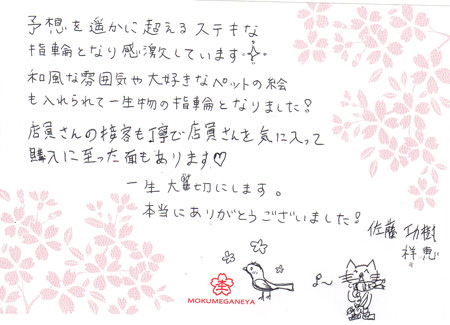 予想を遥かに超えるステキな
指輪となり感激しています
和風な雰囲気や大好きなペットの絵
も入れられて一生物の指輪となりました!
店員さんの接客も丁寧で店員さんを気に入って
購入に至った面もあります♡
一生大切にします。
本当にありがとうございました!
佐藤 功樹
祥恵
MOKUMEGANEYA